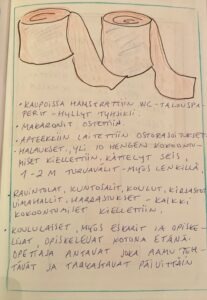 • KAUPOISSA HAMSTRATTIIN WC- TALOUSPA-
PERIT - HYLLYT TYHJIKSI.
• MAKARONIT OSTETTIIN.
• APTEEKKIIN LAITETTIIN OSTORAJOITUKSET.
• HALAUKSET, YLI 10 HENGEN KOKOONTU-
MISET KIELLETTIIN, KÄTTELYT SEIS,
1-2 M TURVAVÄLIT - MYÖS LENKILLÄ.
• RAVINTOLAT, KUNTOSALIT, KOULUT, KIRJASTOT
UIMAHALLIT, HARRASTUKSET - KAIKKI
KOKOONTUMISET KIELLETTIIN.
• KOULULAISET, MYÖS ESKARIT JA OPISKE-
LIJAT, OPISKELEVAT KOTONA ETÄNÄ.
OPETTAJA ANTAVAT JOKA AAMU TEH-
TÄVÄT JA TARKASTAVAT PÄIVITTÄIN